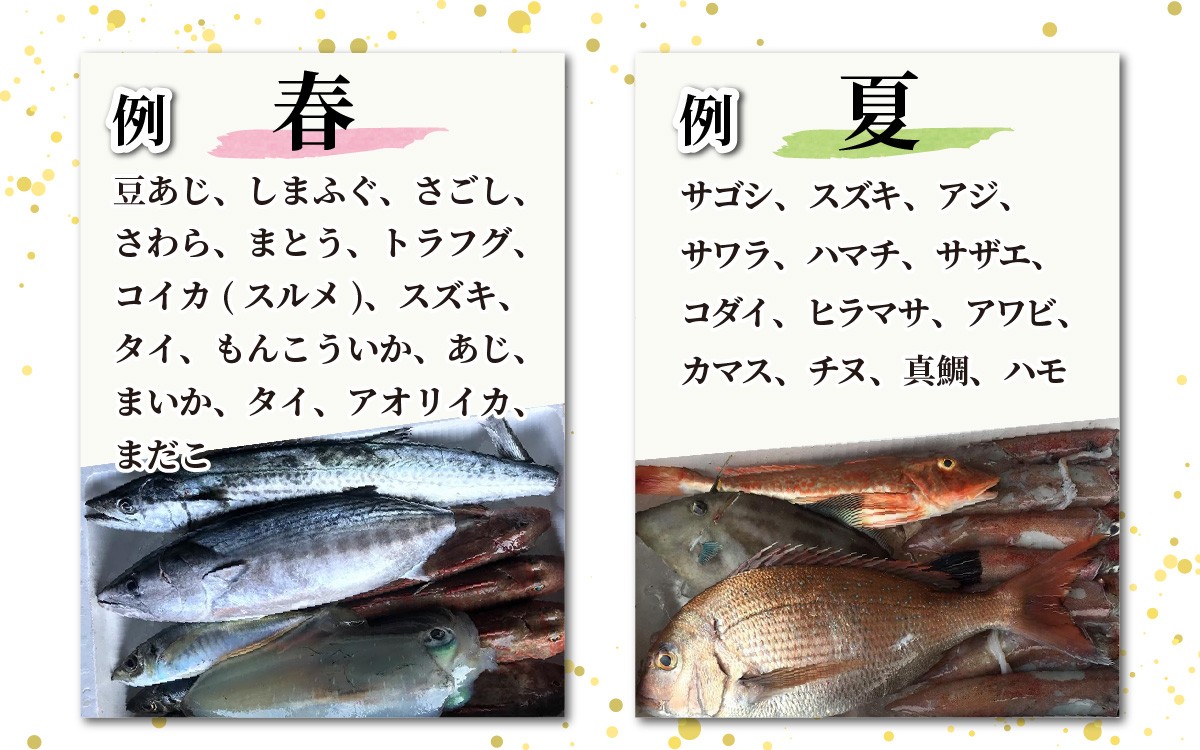 例 春
豆あじ、しまふぐ、さごし、
さわら、まとう、トラフグ、
コイカ(スルメ)、スズキ、
タイ、もんこういか、あじ、
まいか、タイ、アオリイカ、
まだこ
例 夏
サゴシ、スズキ、アジ、
サワラ、ハマチ、サザエ、
コダイ、ヒラマサ、アワビ、
カマス、チヌ、真鯛、ハモ